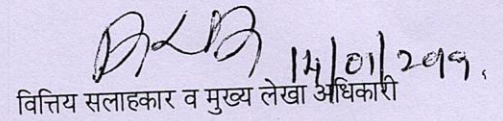 14/01/2019.
वित्तिय सलाहकार व मुख्य लेखा अधिकारी